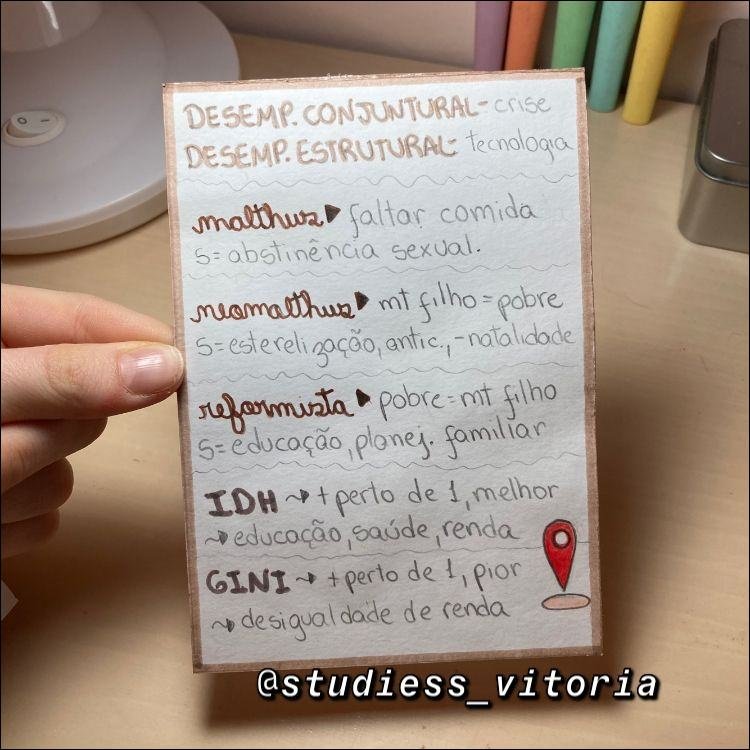 DESEMP. CONJUNTURAL- crise
DESEMP. ESTRUTURAL- tecnologia
malthus▶ faltar comida
S= abstinência sexual.
neomalthus▶ mt filho = pobre
S= esterelização, antic., - natalidade
reformista▶ pobre = mt filho
S= educação, planej. familiar
IDH ~> + perto de 1, melhor
~> educação, saúde, renda
GINI ~> + perto de 1, pior
~> desigualdade de renda
@studiess_vitoria